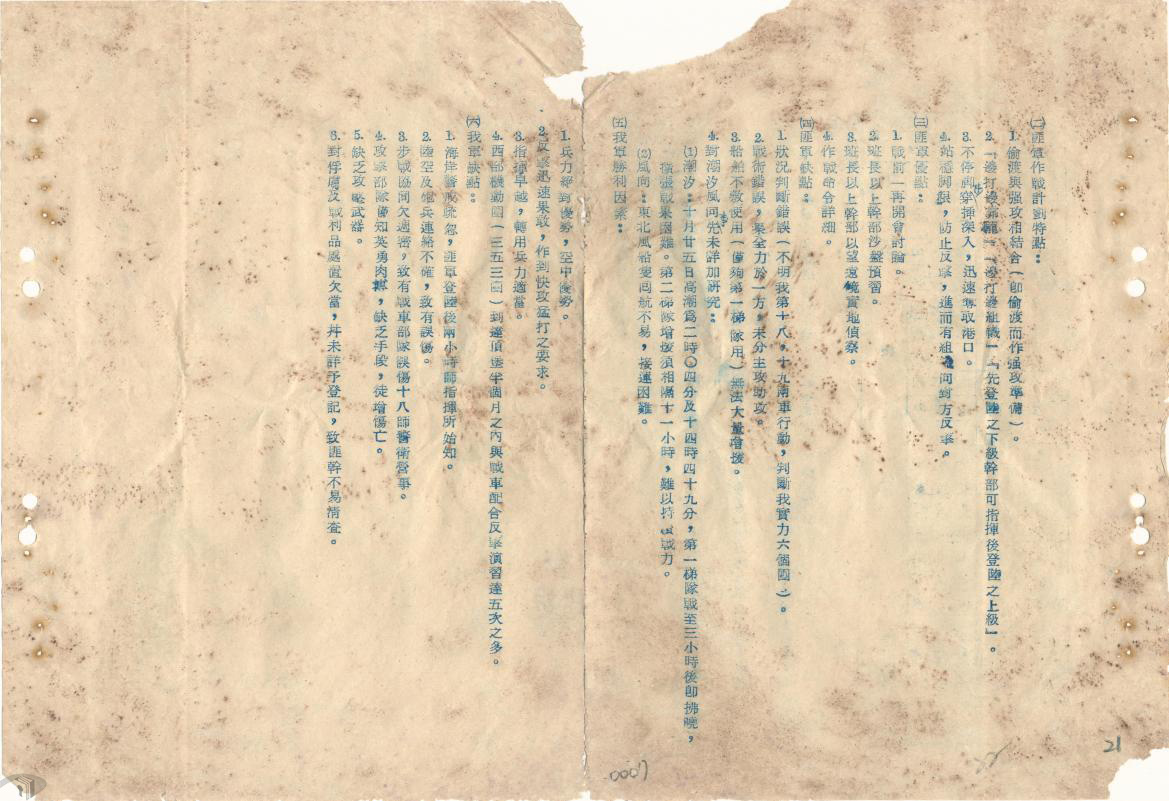 ㈡匪軍作戰計劃特點：
1.偷渡與强攻相結合（卽偷渡而作强攻準備）。
2.「邊打邊靠攏」「邊打邊組織」「先登陸之下級幹部可指揮後登陸之上級」。
3.不停的穿揷深入，迅速奪取港口。
4.站穩脚跟，防止反擊，進而有組織向對方反擊。
㈢匪軍優點：
1.戰前一再開會討論。
2.班長以上幹部沙盤預習。
3.班長以上幹部以望遠鏡實地偵察。
4.作戰命令詳細。
㈣匪軍缺點：
1.狀况判斷錯誤（不明我第十八，十九兩軍行動，判斷我實力六個團）。
2.戰術錯誤，集全力於一方，未分主攻助攻。
3.船舶不敷使用（僅夠第一梯隊用）無法大量增援。
4.對潮汐風向先未詳加研究：
(1)潮汐：十月廿五日高潮爲二時〇四分及十四時四十九分，第一梯隊戰至三小時後卽拂曉，
擴張戰果困難。第二梯隊增援須相隔十一小時，難以持 戰力。
(2)風向：東北風船隻囘航不易，接運困難。
㈤我軍勝利因素：
1.兵力絕對優勢，空中優勢。
2.反擊迅速果敢，作到快攻猛打之要求。
3.指揮卓越，轉用兵力適當。
4.西部機動團（三五三團）到達頂堡半個月之內與戰車配合反擊演習達五次之多。
㈥我軍缺點：
1.海岸警戒疏忽，匪軍登陸後兩小時師指揮所始知。
2.陸空及砲兵連絡不確，致有誤傷。
3.步戰協同欠適密，致有戰車部隊誤傷十八師警衛營事。
4.攻擊部隊僅知英勇肉搏，缺乏手段，徒增傷亡。
5.缺乏攻堅武器。
6.對俘虜及戰利品處置欠當，幷未詳予登記，致匪幹不易清查。
0007
21